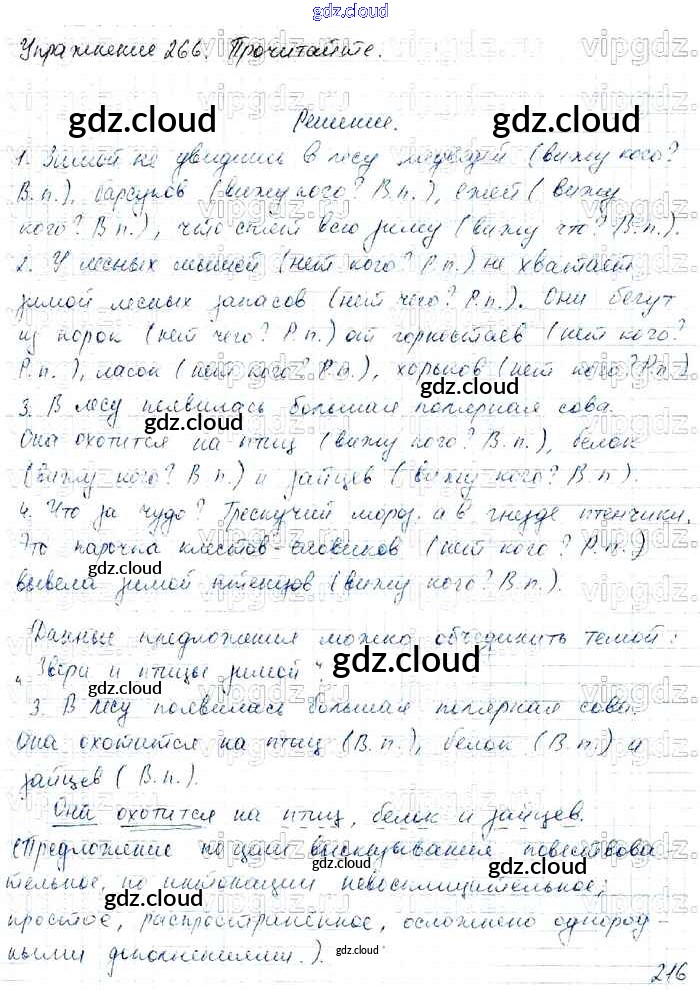 gdz.cloud
Упражнение 266. Прочитайте.
Решение.
1. Зимой не увидишь в лесу медведей (вижу кого?
В.п.), барсуков (вижу кого? В.п.), ежей (вижу
кого? В.п.), что спят всю зиму (вижу что? В.п.).
2. У лесных мышей (нет кого? Р.п.) не хватает
зимой лесных запасов (нет чего? Р.п.). Они бегут
из норок (нет чего? Р.п.) от горностаев (нет кого?
Р.п.), ласок (нет кого? Р.п.), хорьков (нет кого? Р.п.)
3. В лесу появилась большая полярная сова.
Она охотится на птиц (вижу кого? В.п.), белок
(вижу кого? В.п.) и зайцев (вижу кого? В.п.).
4. Что за чудо? Трескучий мороз, а в гнезде птенчики.
Это парочка клестов- (нет кого? Р.п.)
вывела зимой птенцов (вижу кого? В.п.).
Данные предложения можно объединить темой:
"Звери и птицы зимой".
3. В лесу появилась большая полярная сова.
Она охотится на птиц (В.п.), белок (В.п.) и
зайцев (В.п.).
Она охотится на птиц, белок и зайцев.
(Предложение по цели высказывания повествова-
тельное, по интонации невосклицательное,
простое, распространённое, осложнено однород-
ными дополнениями.).
216